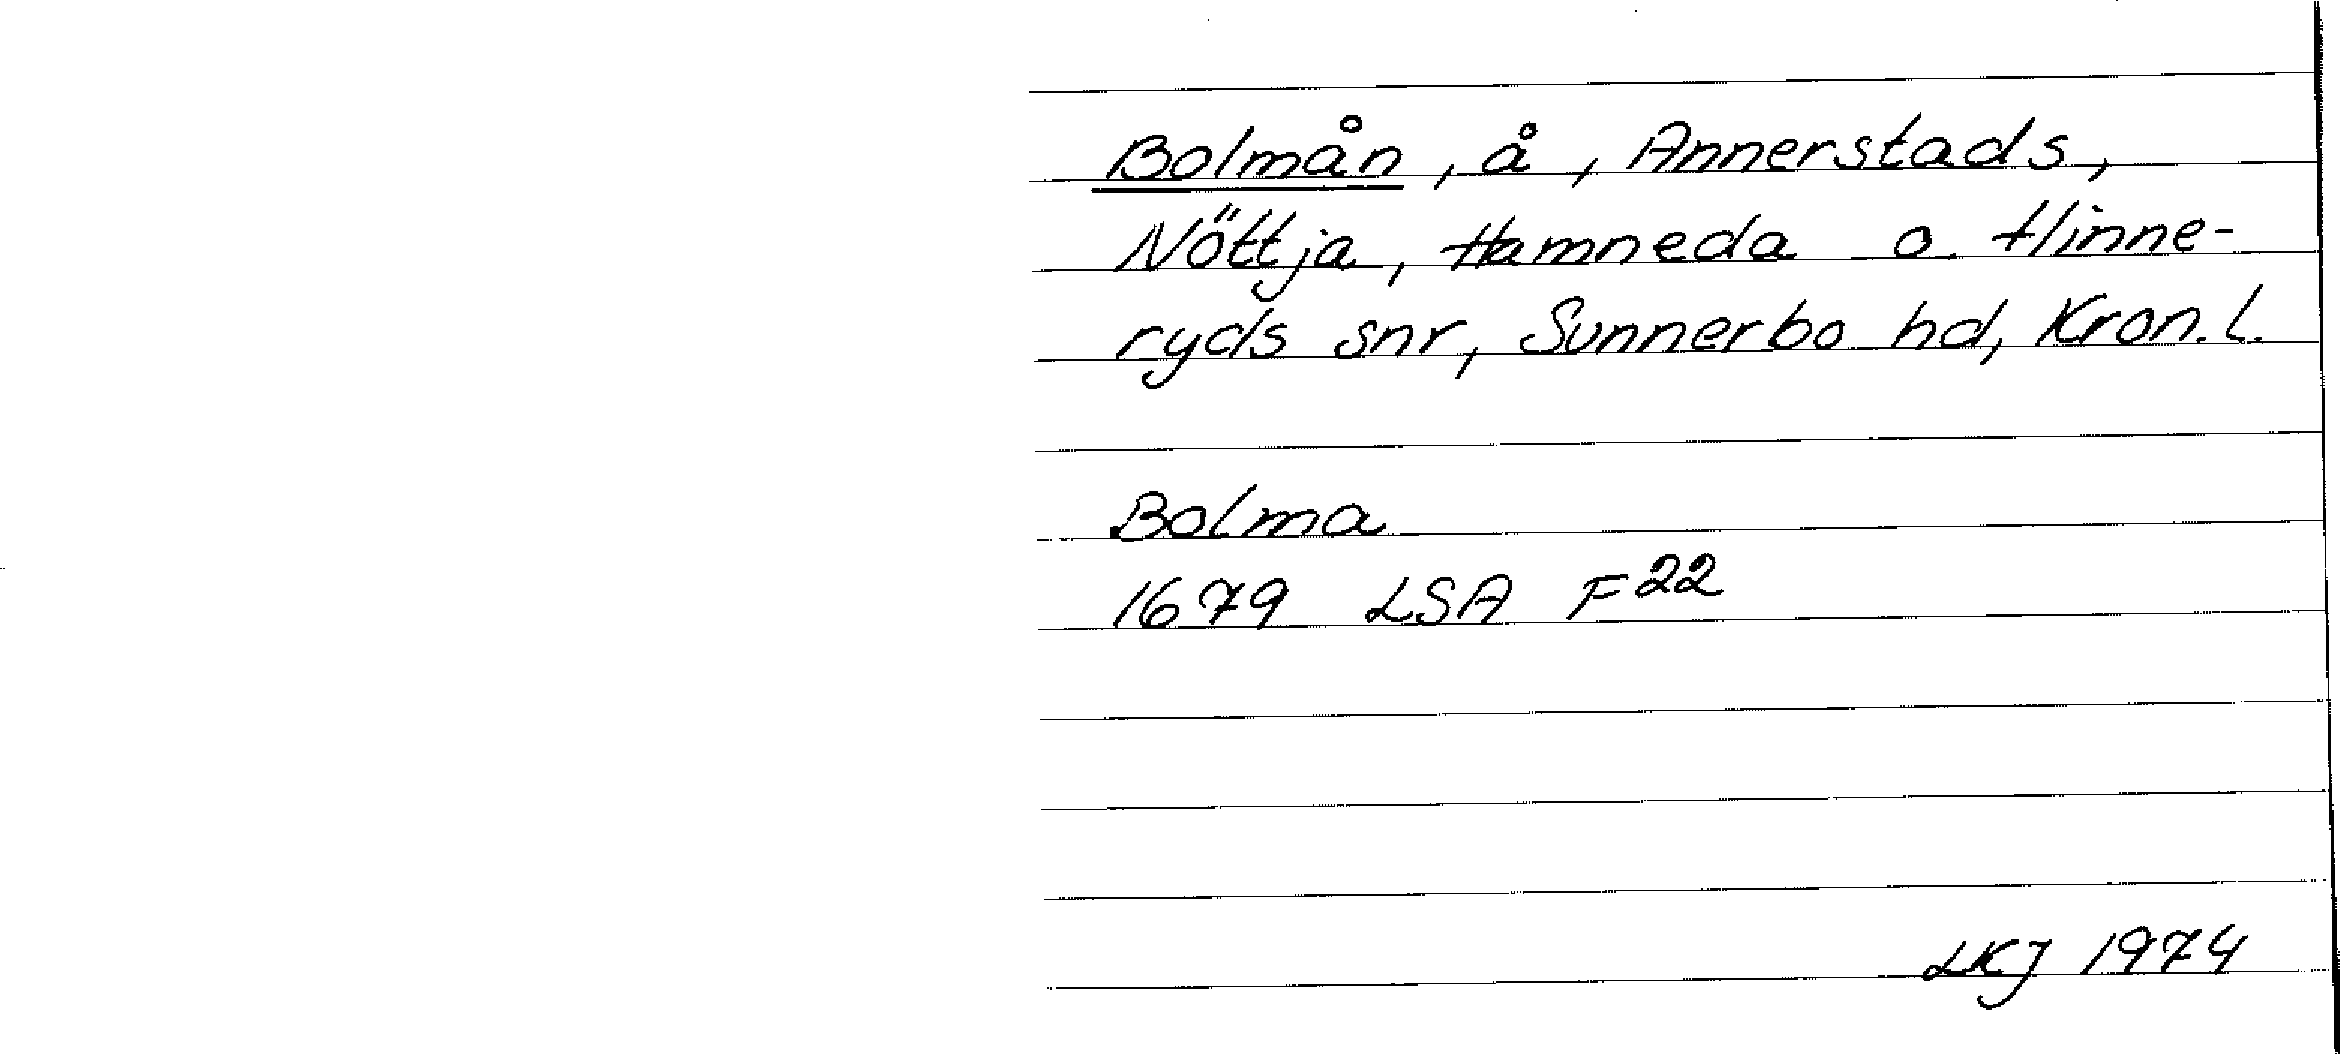 Bolmån, å, Annerstads,
Nöttja, Hamneda o. Hinne-
ryds snr, Sunnerbo hd, Kron.l.
Bolma
1679 LSA F22
LKJ 1974